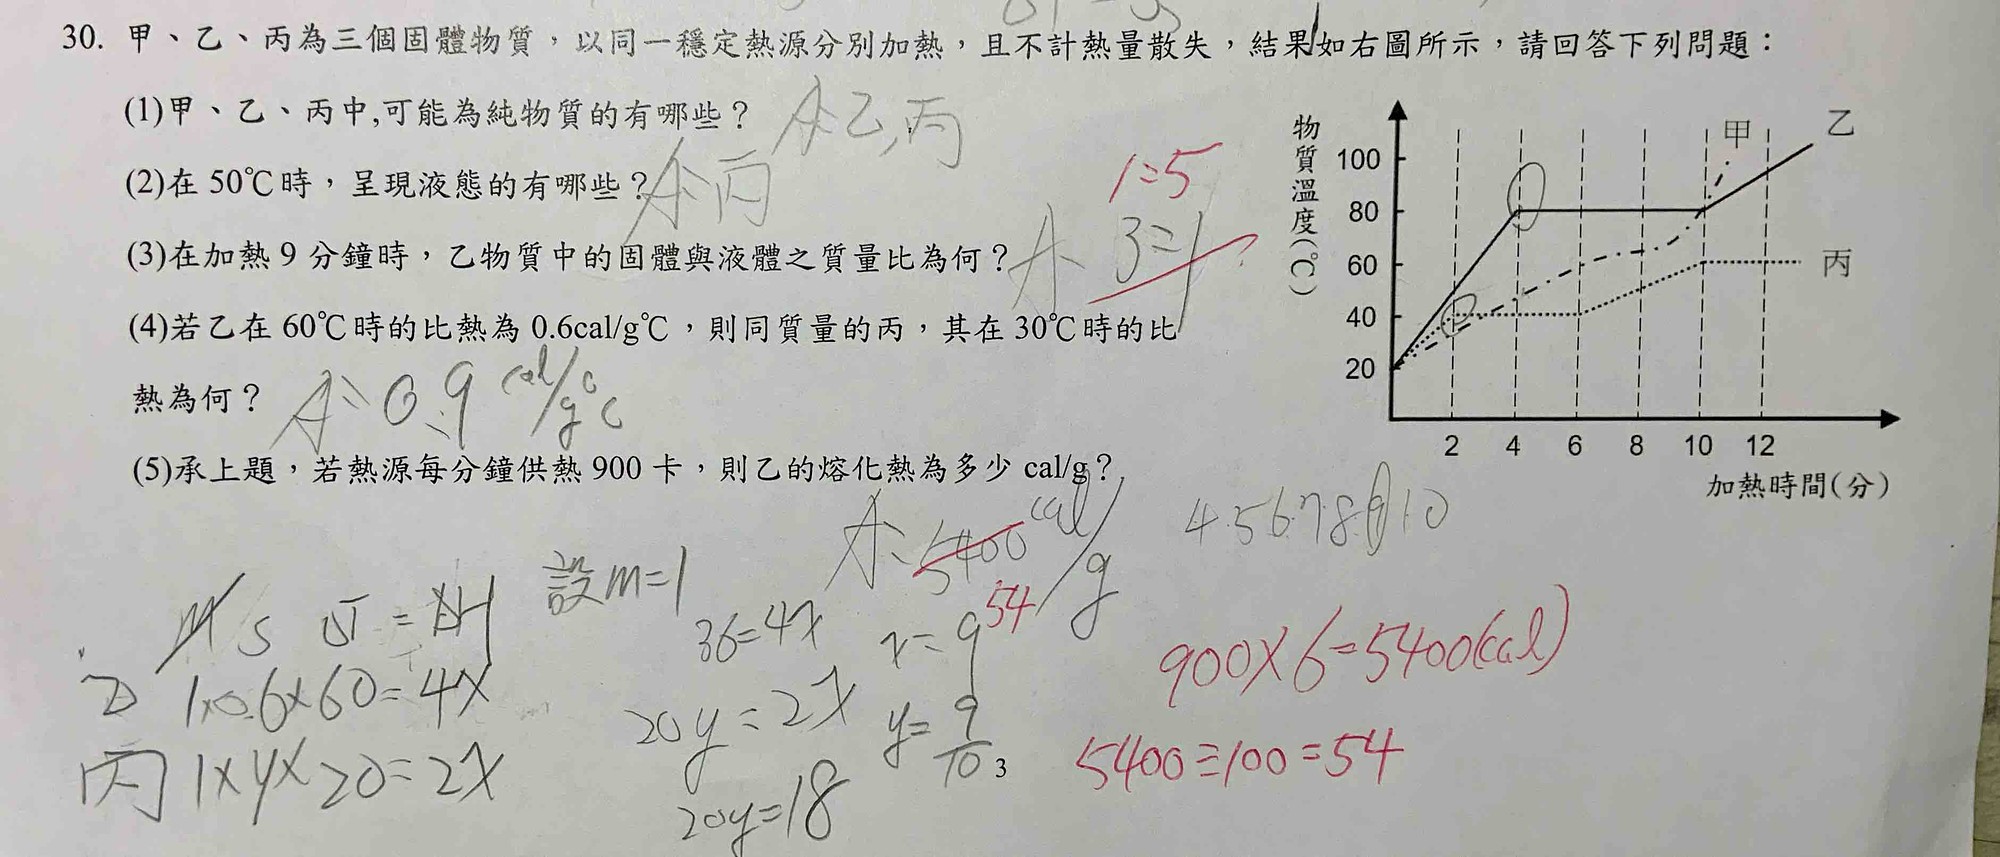 30. 甲、乙、丙為三個固體物質，以同一穩定熱源分別加熱，且不計熱量散失，結果如右圖所示，請回答下列問題：
(1)甲、乙、丙中,可能為純物質的有哪些？ A:乙,丙
(2)在 50℃時，呈現液態的有哪些？ A:丙
1:5
(3)在加熱 9 分鐘時，乙物質中的固體與液體之質量比為何？ A: 3:1
(4)若乙在 60℃時的比熱為 0.6cal/g℃，則同質量的丙，其在 30℃時的比
熱為何？ A: 0.9 cal/g℃
(5)承上題，若熱源每分鐘供熱 900 卡，則乙的熔化熱為多少 cal/g？
A: 5400 cal/g
54
4.5.6.7.8.9.10
物質溫度(℃)
100
80
60
40
20
甲
乙
丙
2 4 6 8 10 12
加熱時間(分)
M S ΔT = ΔH
設m=1
乙 1×0.6×60=4x
丙 1×y×20=2x
36=4x x=9
20y=2x y=9/10
20y=18
3
900×6=5400(cal)
5400÷100=54